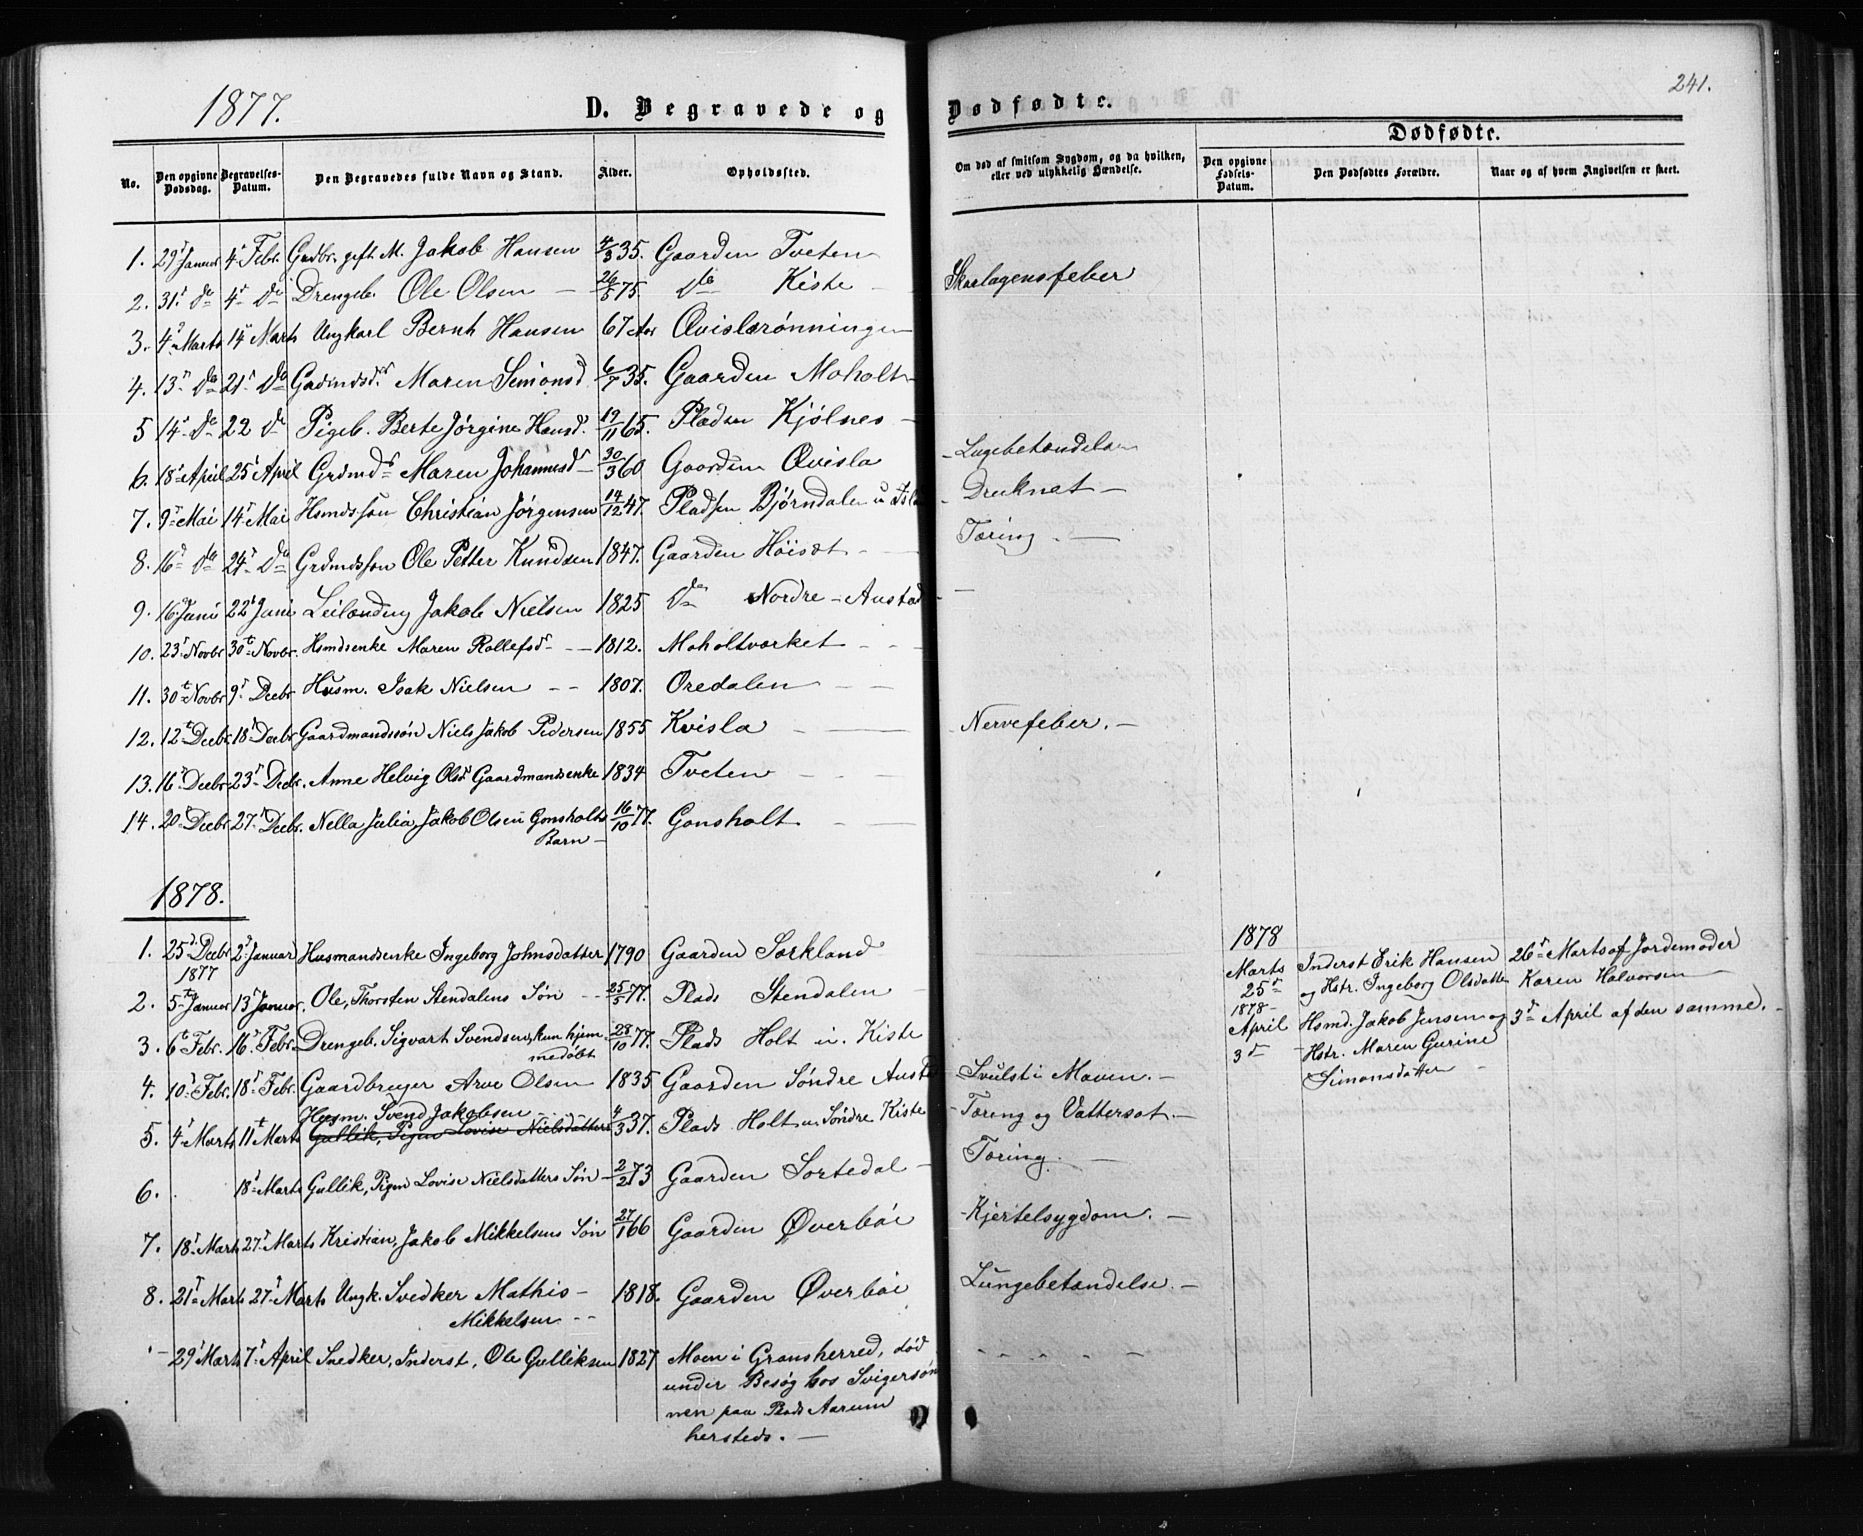 1877.
D. Begravede og
Dødfødte.
241.
Dødfødte.
No.
Den opgivne Dødsdag.
Begravelses-Datum.
Den Begravedes fulde Navn og Stand.
Alder.
Opholdssted.
Om død af smitsom Sygdom, og da hvilken, eller ved ulykkelig Hændelse.
Den opgivne Fødsels-Datum.
Den Dødfødtes Forældre.
Naar og af hvem Angivelsen er skeet.
1. 29 Januar 4 Febr. Gaardbr. gift M. Jakob Hansen 4/3 35. Gaarden Tveten
2. 31 do 4 do Drengeb. Ole Olsen 26/5 75. do Kiste - Skarlagensfeber
3. 4 Marts 14 Marts Ungkarl Bernt Hansen 67 Aar Qvislarønningen
4. 13 do 21 do Maren Simonsd. 6/7 35. Gaarden Moholt
5 14 do 22 do Pigeb. Berte Jørgine Hansd. 19/11 65. Pladsen Kjølnes -
6. 18 April 25 April Grdmd. Maren Johannesd 30/3 60 Gaarden Qvisla - Lugebetændelse
7. 9 Mai 14 Mai Hsmdssøn Christian Jørgensen 14/12 47. Pladsen Bjørndalen u - Druknet -
8. 16 do 24 do Grdmdssøn Ole Petter Knudsen 1847. Gaarden Høisæt - Tæring -
9. 16 Juni 22 Juni Leilænding Jakob Nielsen 1825 do Nordre-Austad -
10. 23 Novbr. 30 Novbr. Hsmdsenke Maren Rollefsd. - 1812. Moholtværket - -
11. 30 Novbr 9 Decbr Husm. Isak Nielsen - - 1807. Oredalen - -
12. 12 Decbr. 18 Decbr. Gaardmandssøn Niels Jakob Pedersen 1855 Kvisla - Nervefeber. -
13. 16 Decbr 23 Decbr. Anne Helvig Olsd. Gaardmandsenke 1834 Tveten - -
14. 20 Decbr 27 Decbr. Nella Julia, Jakob Olsen Gonsholts 16/10 77. Gonsholt -
Barn -
1878.
1. 25 Decbr 2 Januar Husmandsenke Ingeborg Johnsdatter 1790 Gaarden Sørkland
1877
2. 5 Januar 13 Januar. Ole, Thorsten Stendalens Søn - 25/5 77. Plads Stendalen -
3. 6 Febr. 16 Febr. Drengeb. Sigvart Svendsen, kun hjem- 28/10 77. Plads Holt u. Kiste
medøbt
4. 10 Febr. 18 Febr. Gaardbruger Arve Olsen 1835 Gaarden Søndre Austad - Svulst i Maven. -
Husm. Svend Jakobsen
5. 4 Marts 11 Marts Gullik, Pigen Lovise Nielsdatters 4/3 37. Plads Holt u. Søndre Kiste - Tæring og Vattersot. -
6. 18 Marts Gullik, Pigen Lovise Nielsdatters Søn - 2/2 73 Gaarden Sortedal - Tæring. -
7. 18 Marts 27 Marts Kristian, Jakob Mikkelsens Søn 27/1 66 Gaarden Øverbøe - Kjertelsygdom. -
8. 21 Marts 27 Marts Ungk. Svedker Mathis - 1818. Gaarden Øverbøe Lungebetændelse. -
Mikkelsen - -
- 29 Marts 7 April Snedker, Inderst, Ole Gulliksen 1827 Moen i Gransherred, død
under Besøg hos Svigersøn
nen paa Plads Aarum
hersteds. -
1878
Marts 25 Inderst Erik Hansen 26 Marts af Jordemoder
og Hstr. Ingeborg Olsdatter Karen Halvorsen
1878
April 3 Hsmd. Jakob Jensen og 3 April af den samme. -
Hstr. Maren Gurine
Simonsdatter -